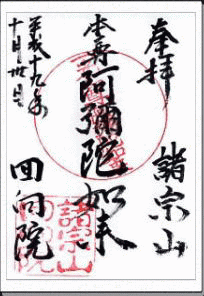 奉拝
諸宗山
本尊阿彌陀如来
平成十九年
十月卅日
回向院
諸宗山
回向院